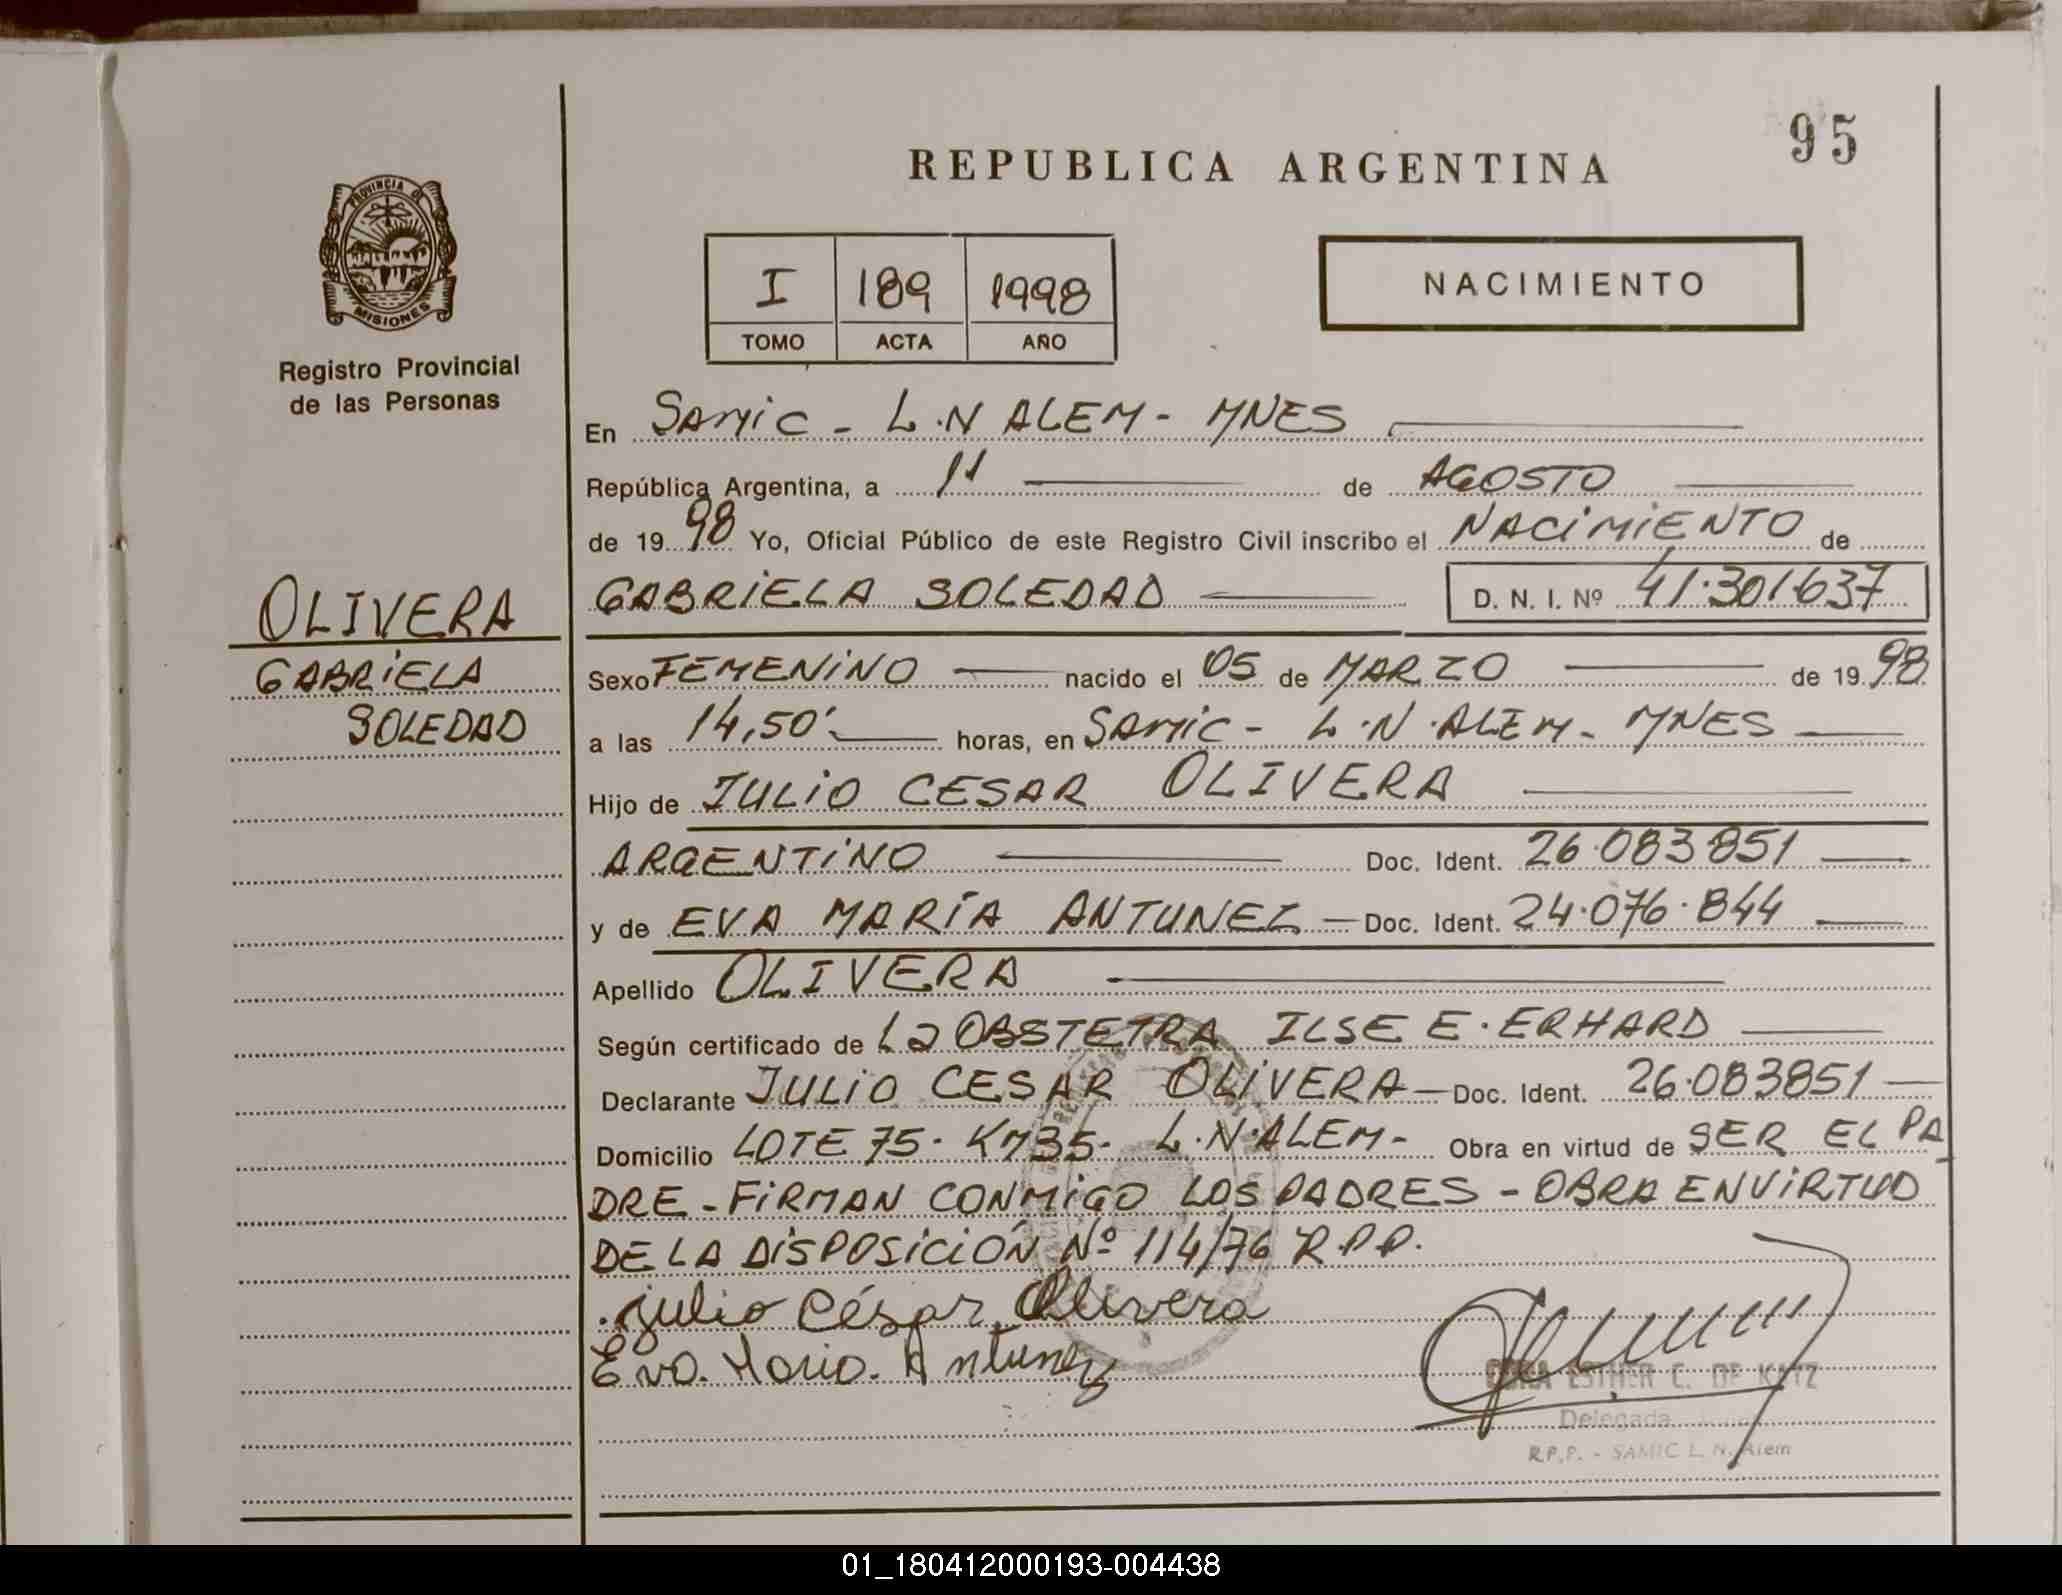 95
REPUBLICA ARGENTINA
PROVINCIA DE
MISIONES
Registro Provincial
de las Personas
I 189 1998
TOMO ACTA AÑO
NACIMIENTO
En SAMIC - L.N ALEM - MNES
República Argentina, a 11 de AGOSTO
de 19 98 Yo, Oficial Público de este Registro Civil inscribo el NACIMIENTO de
GABRIELA SOLEDAD D. N. I. Nº 41.301.637
OLIVERA
GABRIELA
SOLEDAD
Sexo FEMENINO nacido el 05 de MARZO de 19 98
a las 14,50' horas, en SAMIC - L.N.ALEM - MNES
Hijo de JULIO CESAR OLIVERA
ARGENTINO Doc. Ident. 26.083851
y de EVA MARÍA ANTUNEZ - Doc. Ident. 24.076.844
Apellido OLIVERA
Según certificado de La OBSTETRA ILSE E. ERHARD
Declarante JULIO CESAR OLIVERA - Doc. Ident. 26.083851
Domicilio LOTE 75 - KM35 - L.N.ALEM - Obra en virtud de SER EL PA
DRE - FIRMAN CONMIGO LOS PADRES - OBRA EN VIRTUD
DE LA DISPOSICIÓN Nº 114/76 R.P.P.
Julio César Olivera
Eva. Maria. Antunez
ESTHER C. DE KATZ
Delegada
R.P.P. - SAMIC L. N. Alem
01_180412000193-004438